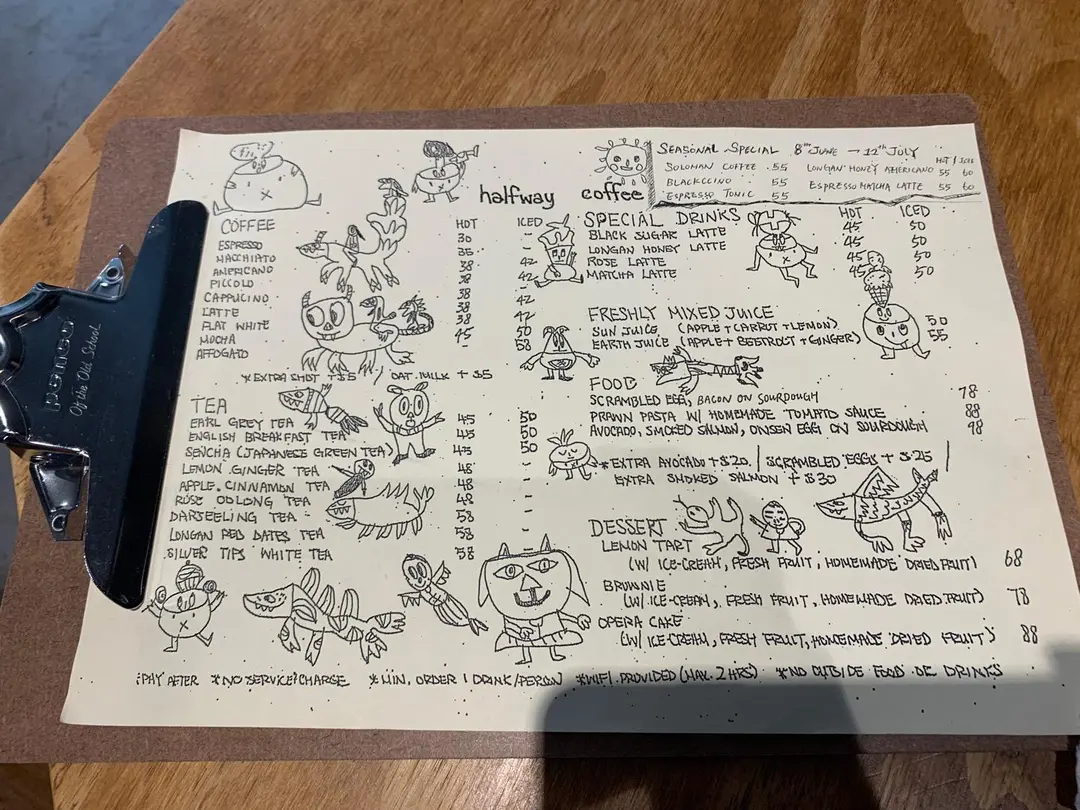 halfway coffee
SEASONAL SPECIAL 8TH JUNE → 12TH JULY
HOT / ICED
SOLOMAN COFFEE 55 LONGAN HONEY AMERICANO 55 60
BLACKCCINO 55 ESPRESSO MATCHA LATTE 55 60
ESPRESSO TONIC 55
COFFEE HOT ICED
ESPRESSO 30 -
MACCHIATO 35 -
AMERICANO 38 42
PICCOLO 38
CAPPUCINO 38
LATTE 38 42
FLAT WHITE 38 42
MOCHA 45 50
AFFOGATO - 58
*EXTRA SHOT +$5 / OAT MILK +$5
TEA
EARL GREY TEA 45 50
ENGLISH BREAKFAST TEA 45 50
SENCHA (JAPANESE GREEN TEA) 45 50
LEMON GINGER TEA 48 -
APPLE CINNAMON TEA 48 -
ROSE OOLONG TEA 48 -
DARJEELING TEA 58 -
LONGAN RED DATES TEA 58 -
SILVER TIPS WHITE TEA 58 -
SPECIAL DRINKS HOT ICED
BLACK SUGAR LATTE 45 50
LONGAN HONEY LATTE 45 50
ROSE LATTE 45 50
MATCHA LATTE 45 50
FRESHLY MIXED JUICE
SUN JUICE (APPLE + CARROT + LEMON) 50
EARTH JUICE (APPLE + BEETROOT + GINGER) 55
FOOD
SCRAMBLED EGG, BACON ON SOURDOUGH 78
PRAWN PASTA W/ HOMEMADE TOMATO SAUCE 88
AVOCADO, SMOKED SALMON, ONSEN EGG ON SOURDOUGH 98
*EXTRA AVOCADO +$20 / SCRAMBLED EGGS +$25 /
EXTRA SMOKED SALMON +$30
DESSERT
LEMON TART
(W/ ICE-CREAM, FRESH FRUIT, HOMEMADE DRIED FRUIT) 68
BROWNIE
(W/ ICE-CREAM, FRESH FRUIT, HOMEMADE DRIED FRUIT) 78
OPERA CAKE
(W/ ICE-CREAM, FRESH FRUIT, HOMEMADE DRIED FRUIT) 88
*PAY AFTER *NO SERVICE CHARGE *MIN. ORDER 1 DRINK/PERSON *WIFI PROVIDED (MAX. 2 HRS) *NO OUTSIDE FOOD OR DRINKS
penco
Of the Old School